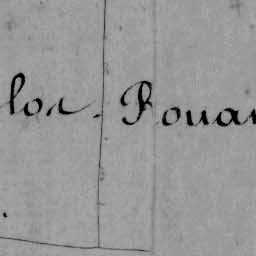 los. Rouan